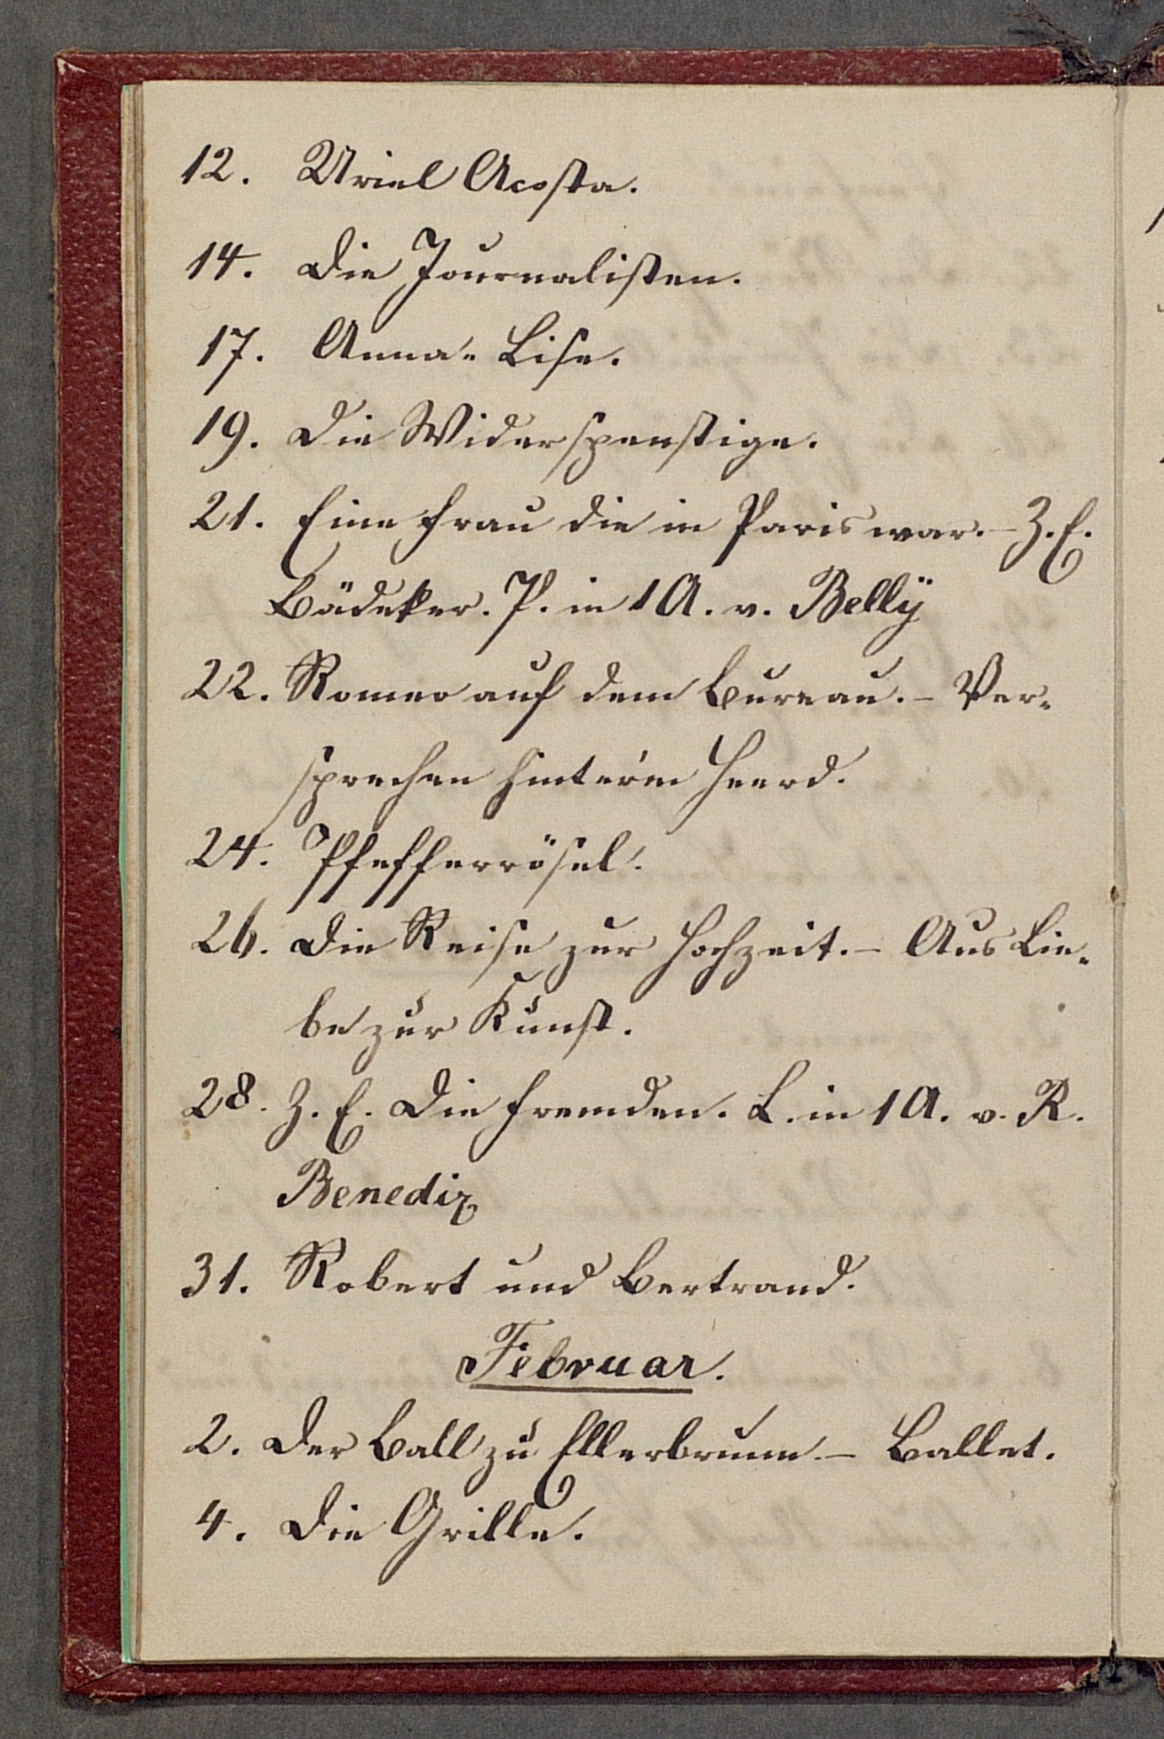 12. Uriel Acosta.
14. Die Journalisten.
17. Anna-Lise.
19. Die Widerspenstige.
21. Eine Frau die in Paris war. – Z. E.
Bädeker. P. in 1 A. v. Belly
22. Romeo auf dem Bureau. – Ver-
sprechen hinter'm Heerd.
24. Pfefferrösel.
26. Die Reise zur Hochzeit. – Aus Lie-
be zur Kunst.
28. Z. E. Die Fremden. L. in 1 A. v. R.
Benedix
31. Robert und Bertrand.
Februar.
2. Der Ball zu Ellerbrunn. – Ballet.
4. Die Grille.